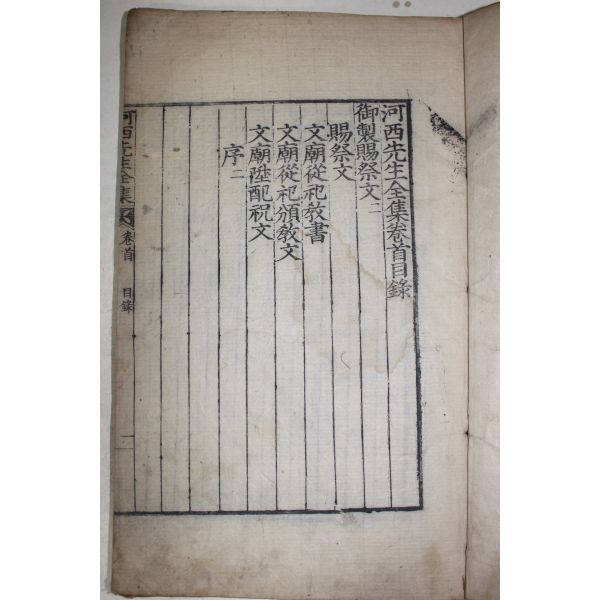 河西先生全集卷首目錄
御製賜祭文二
賜祭文
文廟從祀敎書
文廟從祀頒敎文
文廟陞配祝文
序二
河西先生全集
卷首
目錄
一